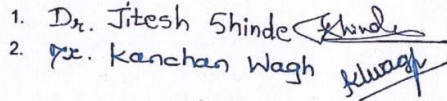 1. Dr. Jitesh Shinde Shinde
2. Dr. Kanchan Wagh KWagh